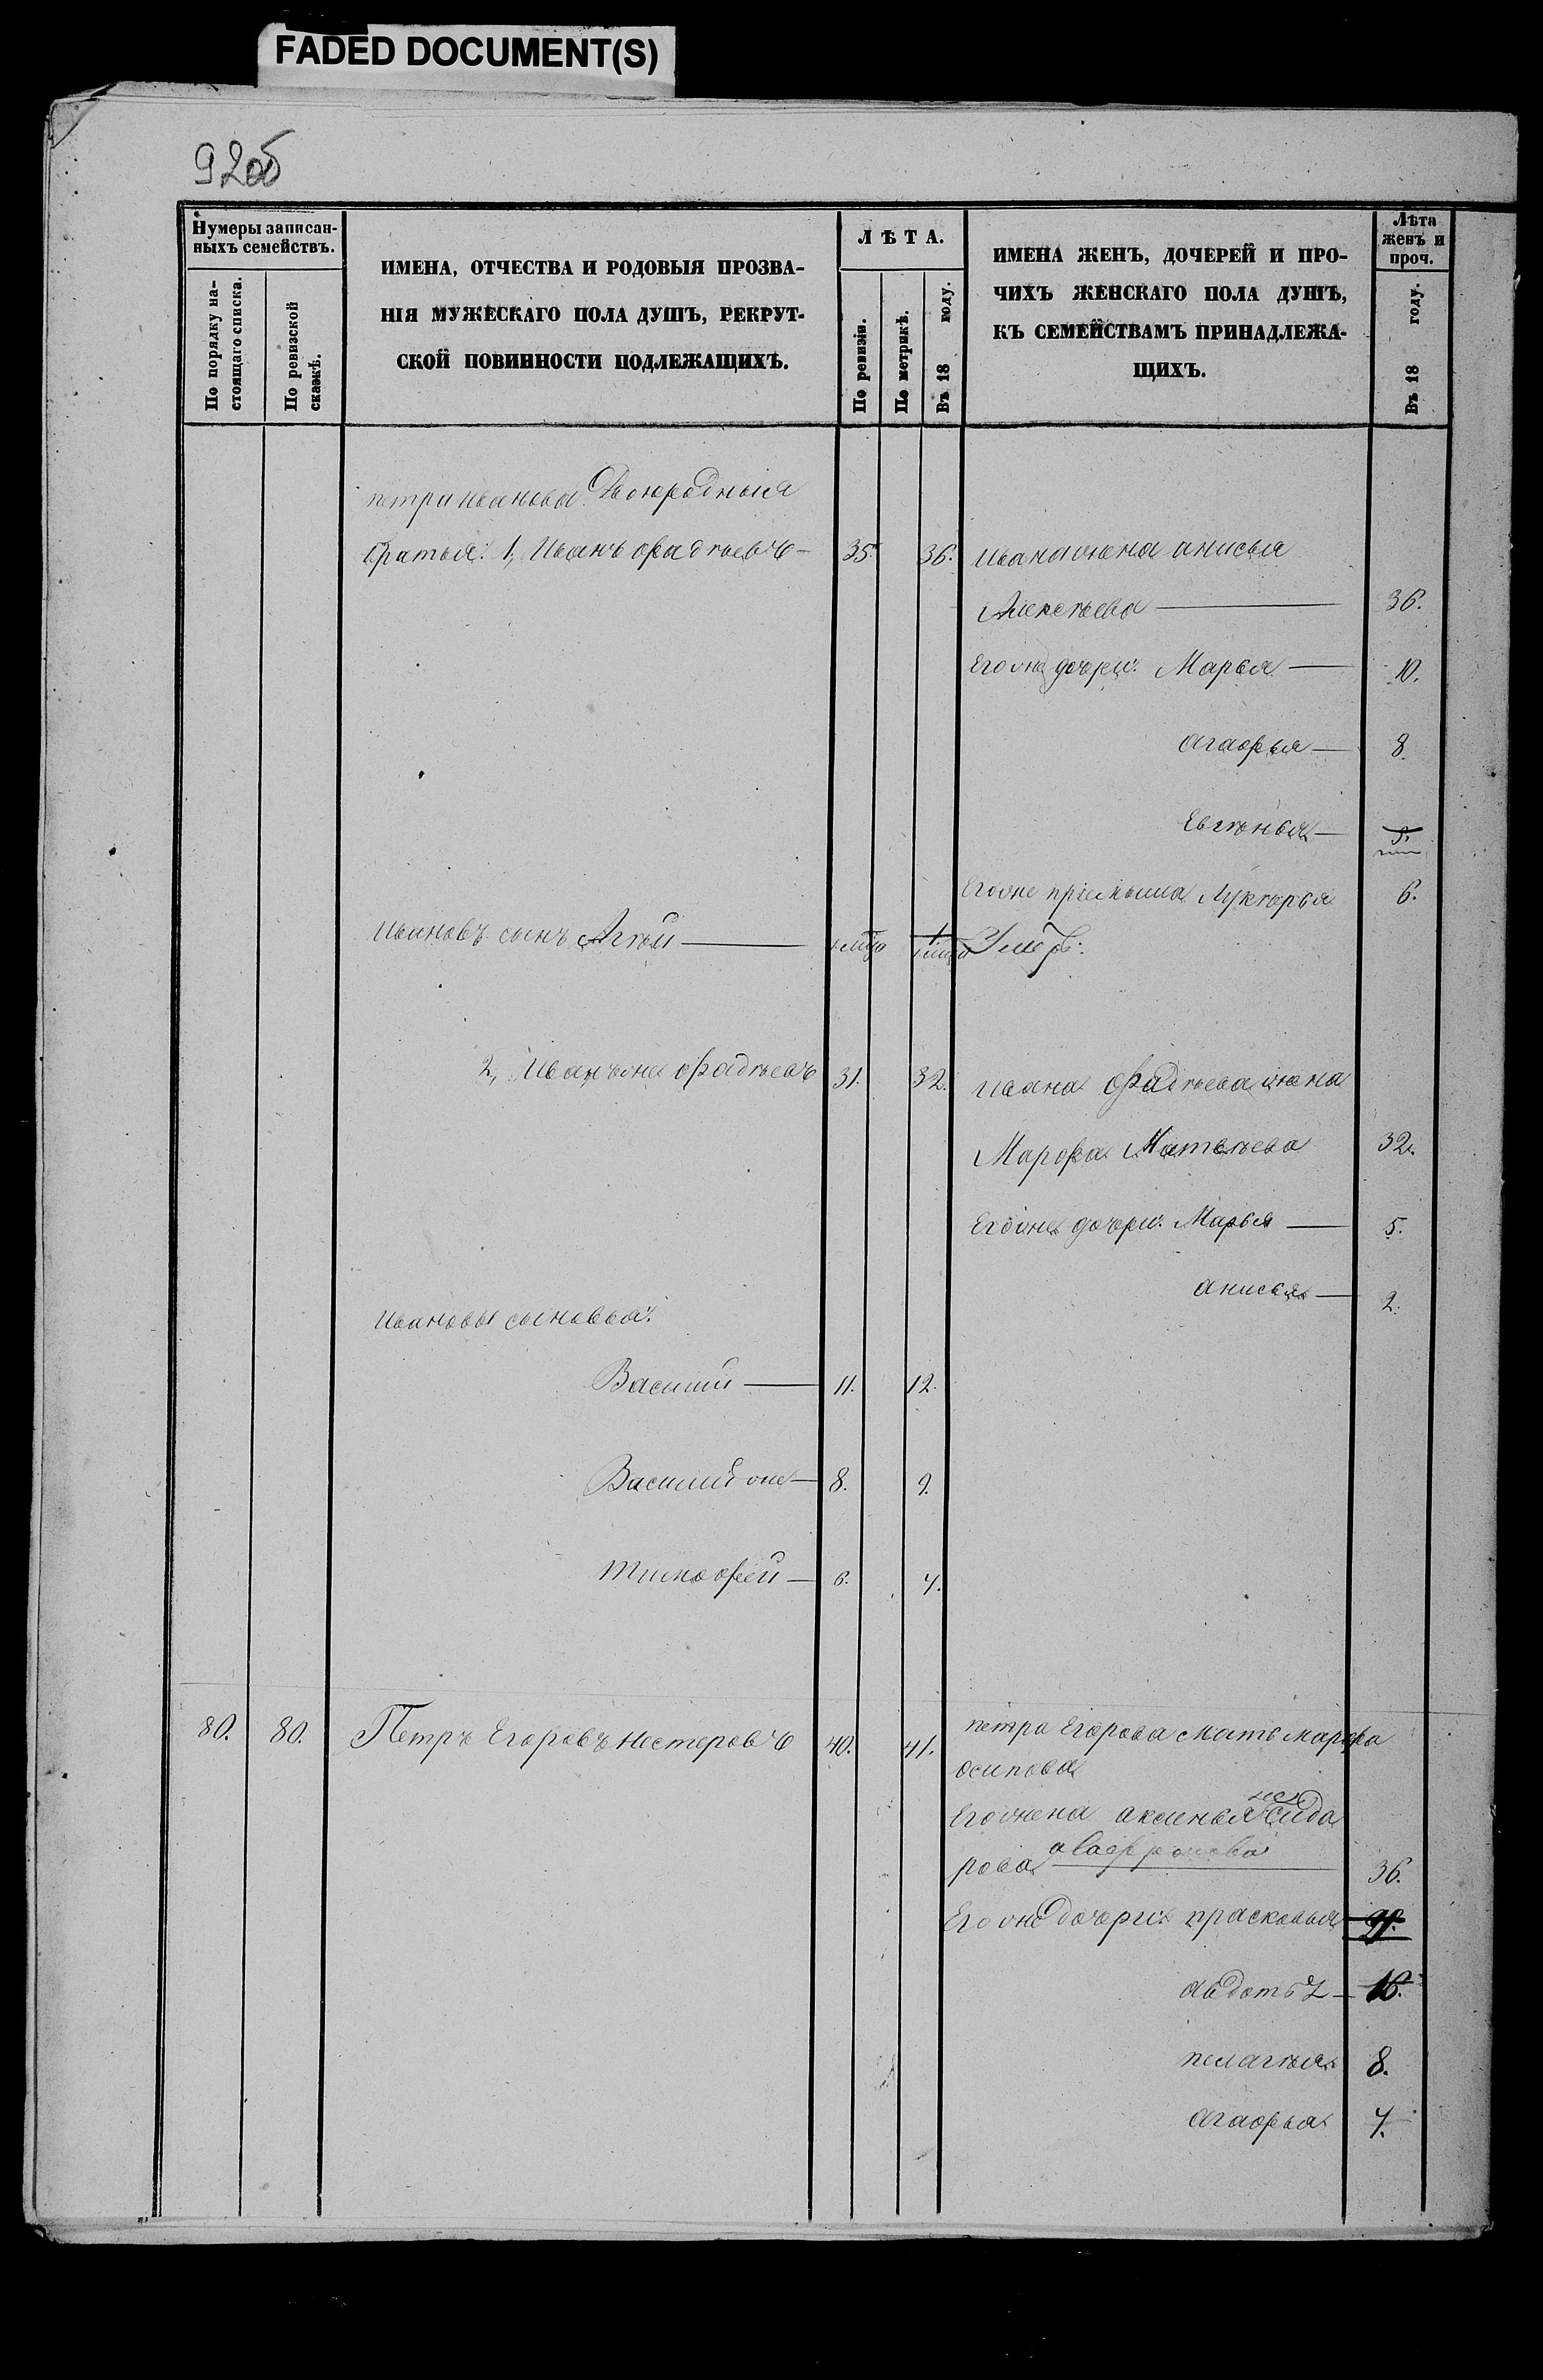 FADED DOCUMENT(S)
92об
Нумеры записан-
ныхъ семействъ.
По порядку на-
стоящаго списка.
По ревизской
сказкѣ.
ИМЕНА, ОТЧЕСТВА И РОДОВЫЯ ПРОЗВА-
НІЯ МУЖЕСКАГО ПОЛА ДУШЪ, РЕКРУТ-
СКОЙ ПОВИННОСТИ ПОДЛЕЖАЩИХЪ.
ЛѢТА.
По ревизіи.
По метрикѣ.
Въ 18 году.
ИМЕНА ЖЕНЪ, ДОЧЕРЕЙ И ПРО-
ЧИХЪ ЖЕНСКАГО ПОЛА ДУШЪ,
КЪ СЕМЕЙСТВАМЪ ПРИНАДЛЕЖА-
ЩИХЪ.
Лѣта
женъ и
проч.
Въ 18 году.
петра иванова Двоюродныя
братья: 1, Иванъ фадѣевъ 35. 36. Ивана жена анисья
Алексѣева 36.
Его же дочери: Марья 10.
агафья 8.
Евгѣнья
Его же пріемыша Лукѣрья 6.
Ивановъ сынъ Агѣй Умеръ:
2, Иванъ же фадѣевъ 31. 32. ивана фадѣева жена
Марфа Матвѣева 32.
Его же дочери: Марья 5.
анисья 2.
Ивановы сыновья:
Василий 11. 12.
Василий же 8. 9.
тимофей 6. 7.
80. 80. Петръ Егоровъ нестеровъ 40. 41. петра Егорова мать марфа
осипова
Его жена аксинья сидо
рова 36.
Его же дочери: прасковья
авдотья 16.
пелагѣя 8.
агафья 7.